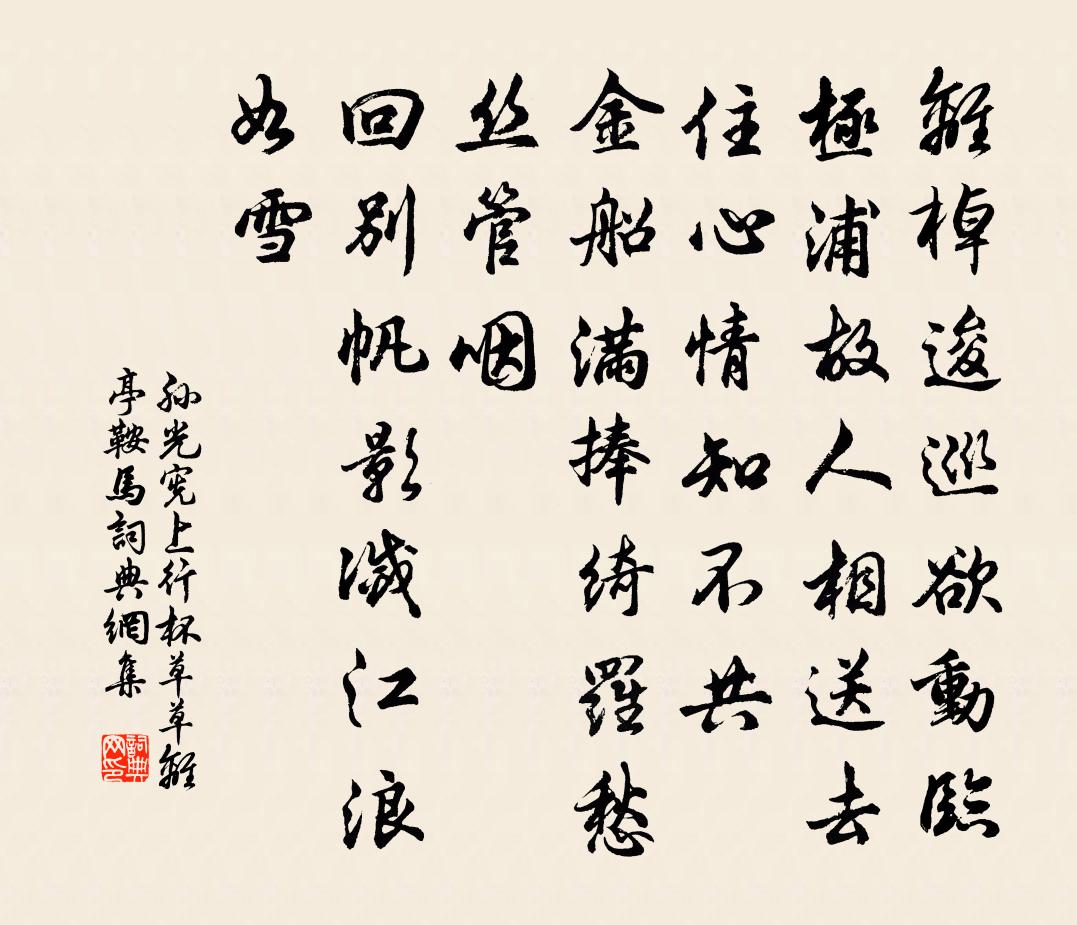 離棹逡巡欲動臨
極浦故人相送去
住心情知不共
金船滿捧綺羅愁
丝管咽
回别帆影滅江浪
如雪
孙光宪上行杯草草離
亭鞍馬詞典網集
詞典网印